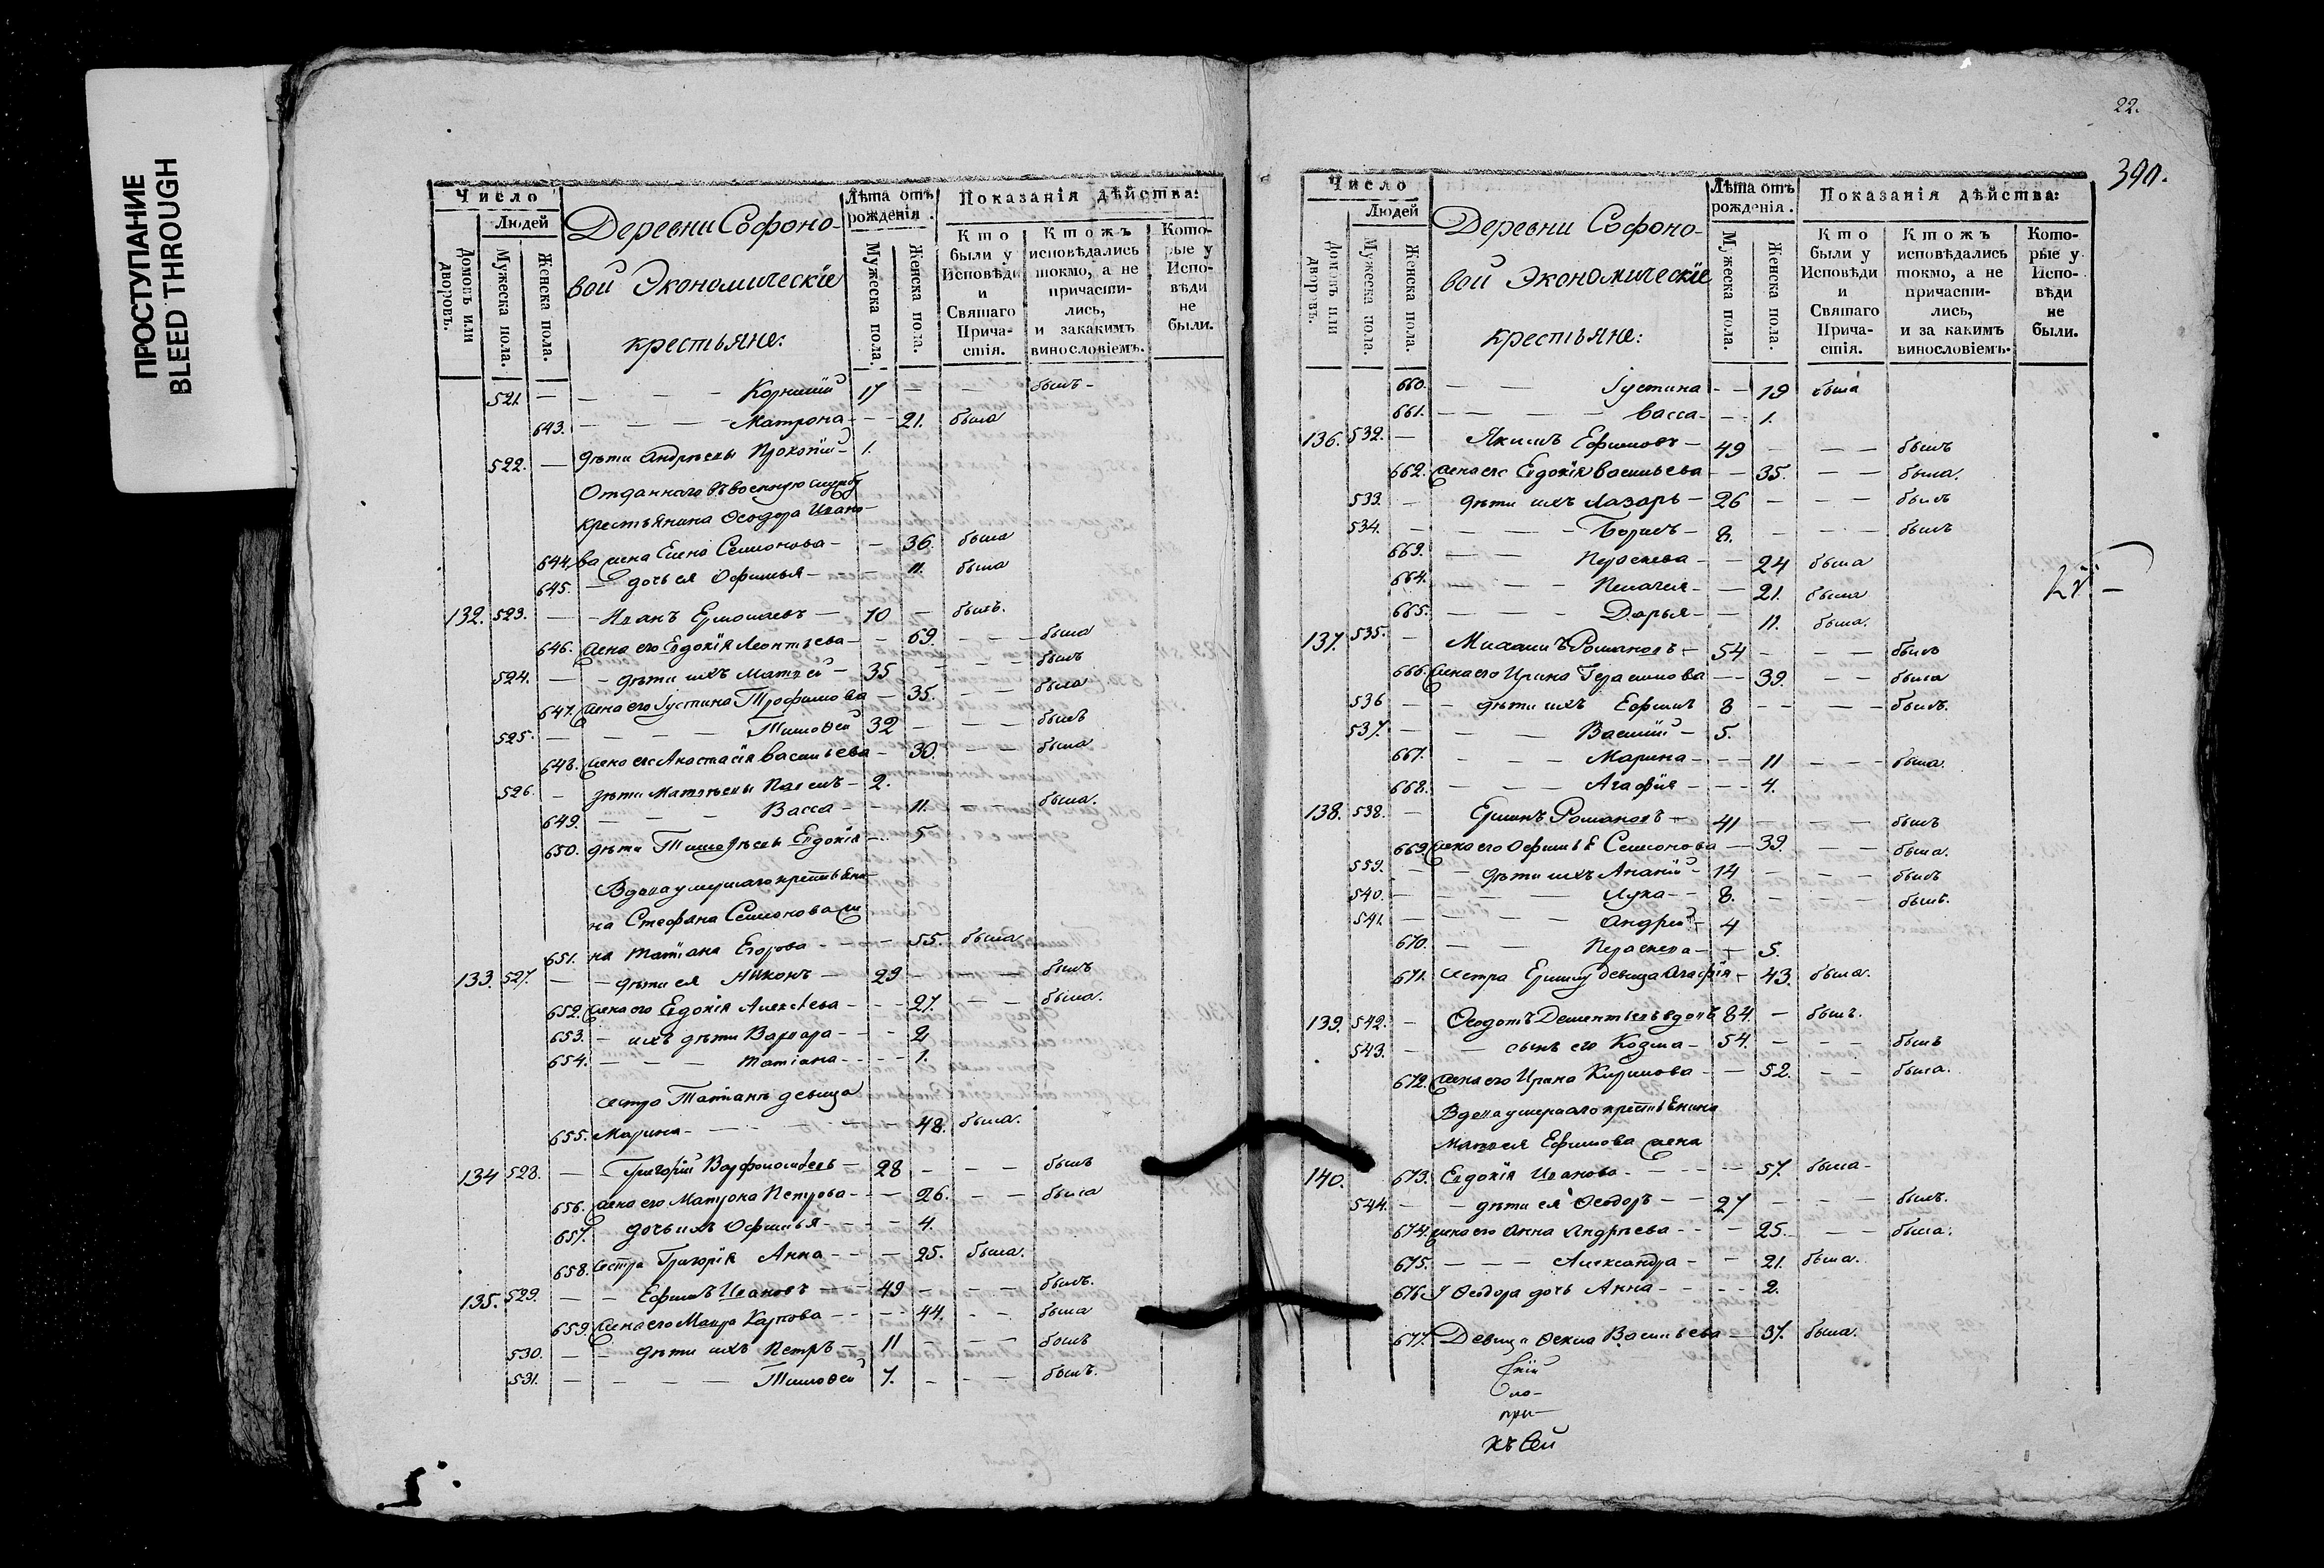 ПРОСТУПАНИЕ
BLEED THROUGH
Число
Людей
Домовъ или дворовъ.
Мужеска пола.
Женска пола.
Деревни Софоно-
вой Экономическїе
крестьяне:
Лѣта отъ рожденія.
Мужеска пола.
Женска пола.
Показанія дѣйства:
Кто были у Исповѣди и Святаго Прича-стія.
Ктожъ исповѣдались токмо, а не причасти-лись, и закакимъ винословіемъ.
Кото-рые у Испо-вѣди не были.
521. — — — — Корнилїй 17 — — былъ —
643. — — — — Матрона — — 21. была
522. — дѣти Андрѣевы Прокопїй — 1.
Отданнаго въ военную службу
крестьянина Ѳеодора Ивано-
644. ва жена Елена Семионова — — 36. была
645. — дочь ея Офимья — — 11. была
132. 523. — — Иванъ Ермолаевъ — 70 — былъ.
646. жена его Евдокїя Леонтьева — — 69. — — была
524. — — дѣти ихъ Матвѣй — 35 — — — былъ
647. жена его Іустина Трофимова — 35. — — была
525. — — — — Тимоѳей 32 — — — былъ
648. жена его Анастасїя Васильева — 30. — — была
526. — дѣти Матвѣевы Павелъ — 2.
649. — — — Васса — — 11. — — была.
650. дѣти Тимоѳѣевы Евдокїя — — 5
Вдова умершаго крестьяни-
на Стефана Семионова же
651. на Татїана Егорова — — 55. была
133. 527. — — дѣти ея Никонъ — 29 — — — былъ
652. жена его Евдокїя Алексѣева — — 27. — — была.
653. — ихъ дѣти Варвара — — 2
654. — — — Татїана — — 1.
сестра Татїанѣ девица
655. Марина — — — — 48. была.
134 528. — Григорїй Варфоломѣевъ — 28 — — — былъ
656. жена его Матрона Петрова — — 26. — — была
657. дочь ихъ Офимья — — 4.
658. сестра Григорїя Анна — — — 25. была.
135. 529. — — Ефимъ Ивановъ — — 49 — — — былъ.
659. жена его Мавра Карпова — — — 44. — — была
530. — — дѣти ихъ Петръ — 11 — — — былъ
531. — — — — Тимоѳей 7. — — — былъ.
22.
390.
Число
Людей
Домовъ или дворовъ.
Мужеска пола.
Женска пола.
Деревни Софоно-
вой Экономическїе
крестьяне:
Лѣта отъ рожденія.
Мужеска пола.
Женска пола.
Показанія дѣйства:
Кто были у Исповѣди и Святаго Прича-стія.
Ктожъ исповѣдались токмо, а не причасти-лись, и за какимъ винословіемъ.
Кото-рые у Испо-вѣди не были.
660. — — Іустина — — 19 была
661. — — — — Васса — — 1.
136. 532. — Якимъ Ефимовъ — 49 — — — былъ
662. жена его Евдокїя Васильева — — 35. — — была.
533. — дѣти ихъ Лазарь — 26 — — — былъ
534. — — — — Борисъ — 8. — — — былъ
663. — — Параскева — — 24 была
664. — — — Пелагея — — 21. была
665. — — — Дарья — — 11. была.
137. 535. — Михаилъ Романовъ — 54 — — — былъ
666. жена его Ирина Герасимова — — 39. — — была
536 — — дѣти ихъ Ефимъ 8 — — — — былъ.
537. — — — Василїй — 5.
667. — — — Марина — — — 11 — — — была.
668. — — — Агафїя — — — 4.
138. 538. — Ермилъ Романовъ — 41 — — — былъ
669. жена его Офимья Семионова — 39. — — была.
539. — — дѣти ихъ Ананїй — 14 — — — былъ
540. — — — — Лука — — 8. — — — былъ.
541. — — — — Андрей — 4
670. — — Параскева — — 5.
671. сестра Ермилу девица Агафїя — 43. была.
139. 542. — Ѳеодотъ Дементьевъ вдовъ 84. — былъ.
543. — — сынъ его Козма — 54. — — — былъ
672. жена его Ирина Кирилова — — 52. — — была.
Вдова умершаго крестьянина
Матвея Ефимова жена
140. 673. Евдокїя Иванова — — — — 57. была —
544. — — дѣти ея Ѳеодоръ — — 27 — — — былъ.
674. жена его Анна Андрѣева — — — 25. — — была.
675. — — — Александра — — 21. была.
676. У Ѳеодора дочь Анна — — — — 2.
677. Девица Ѳекла Васильева — 37. была.
къ Сей